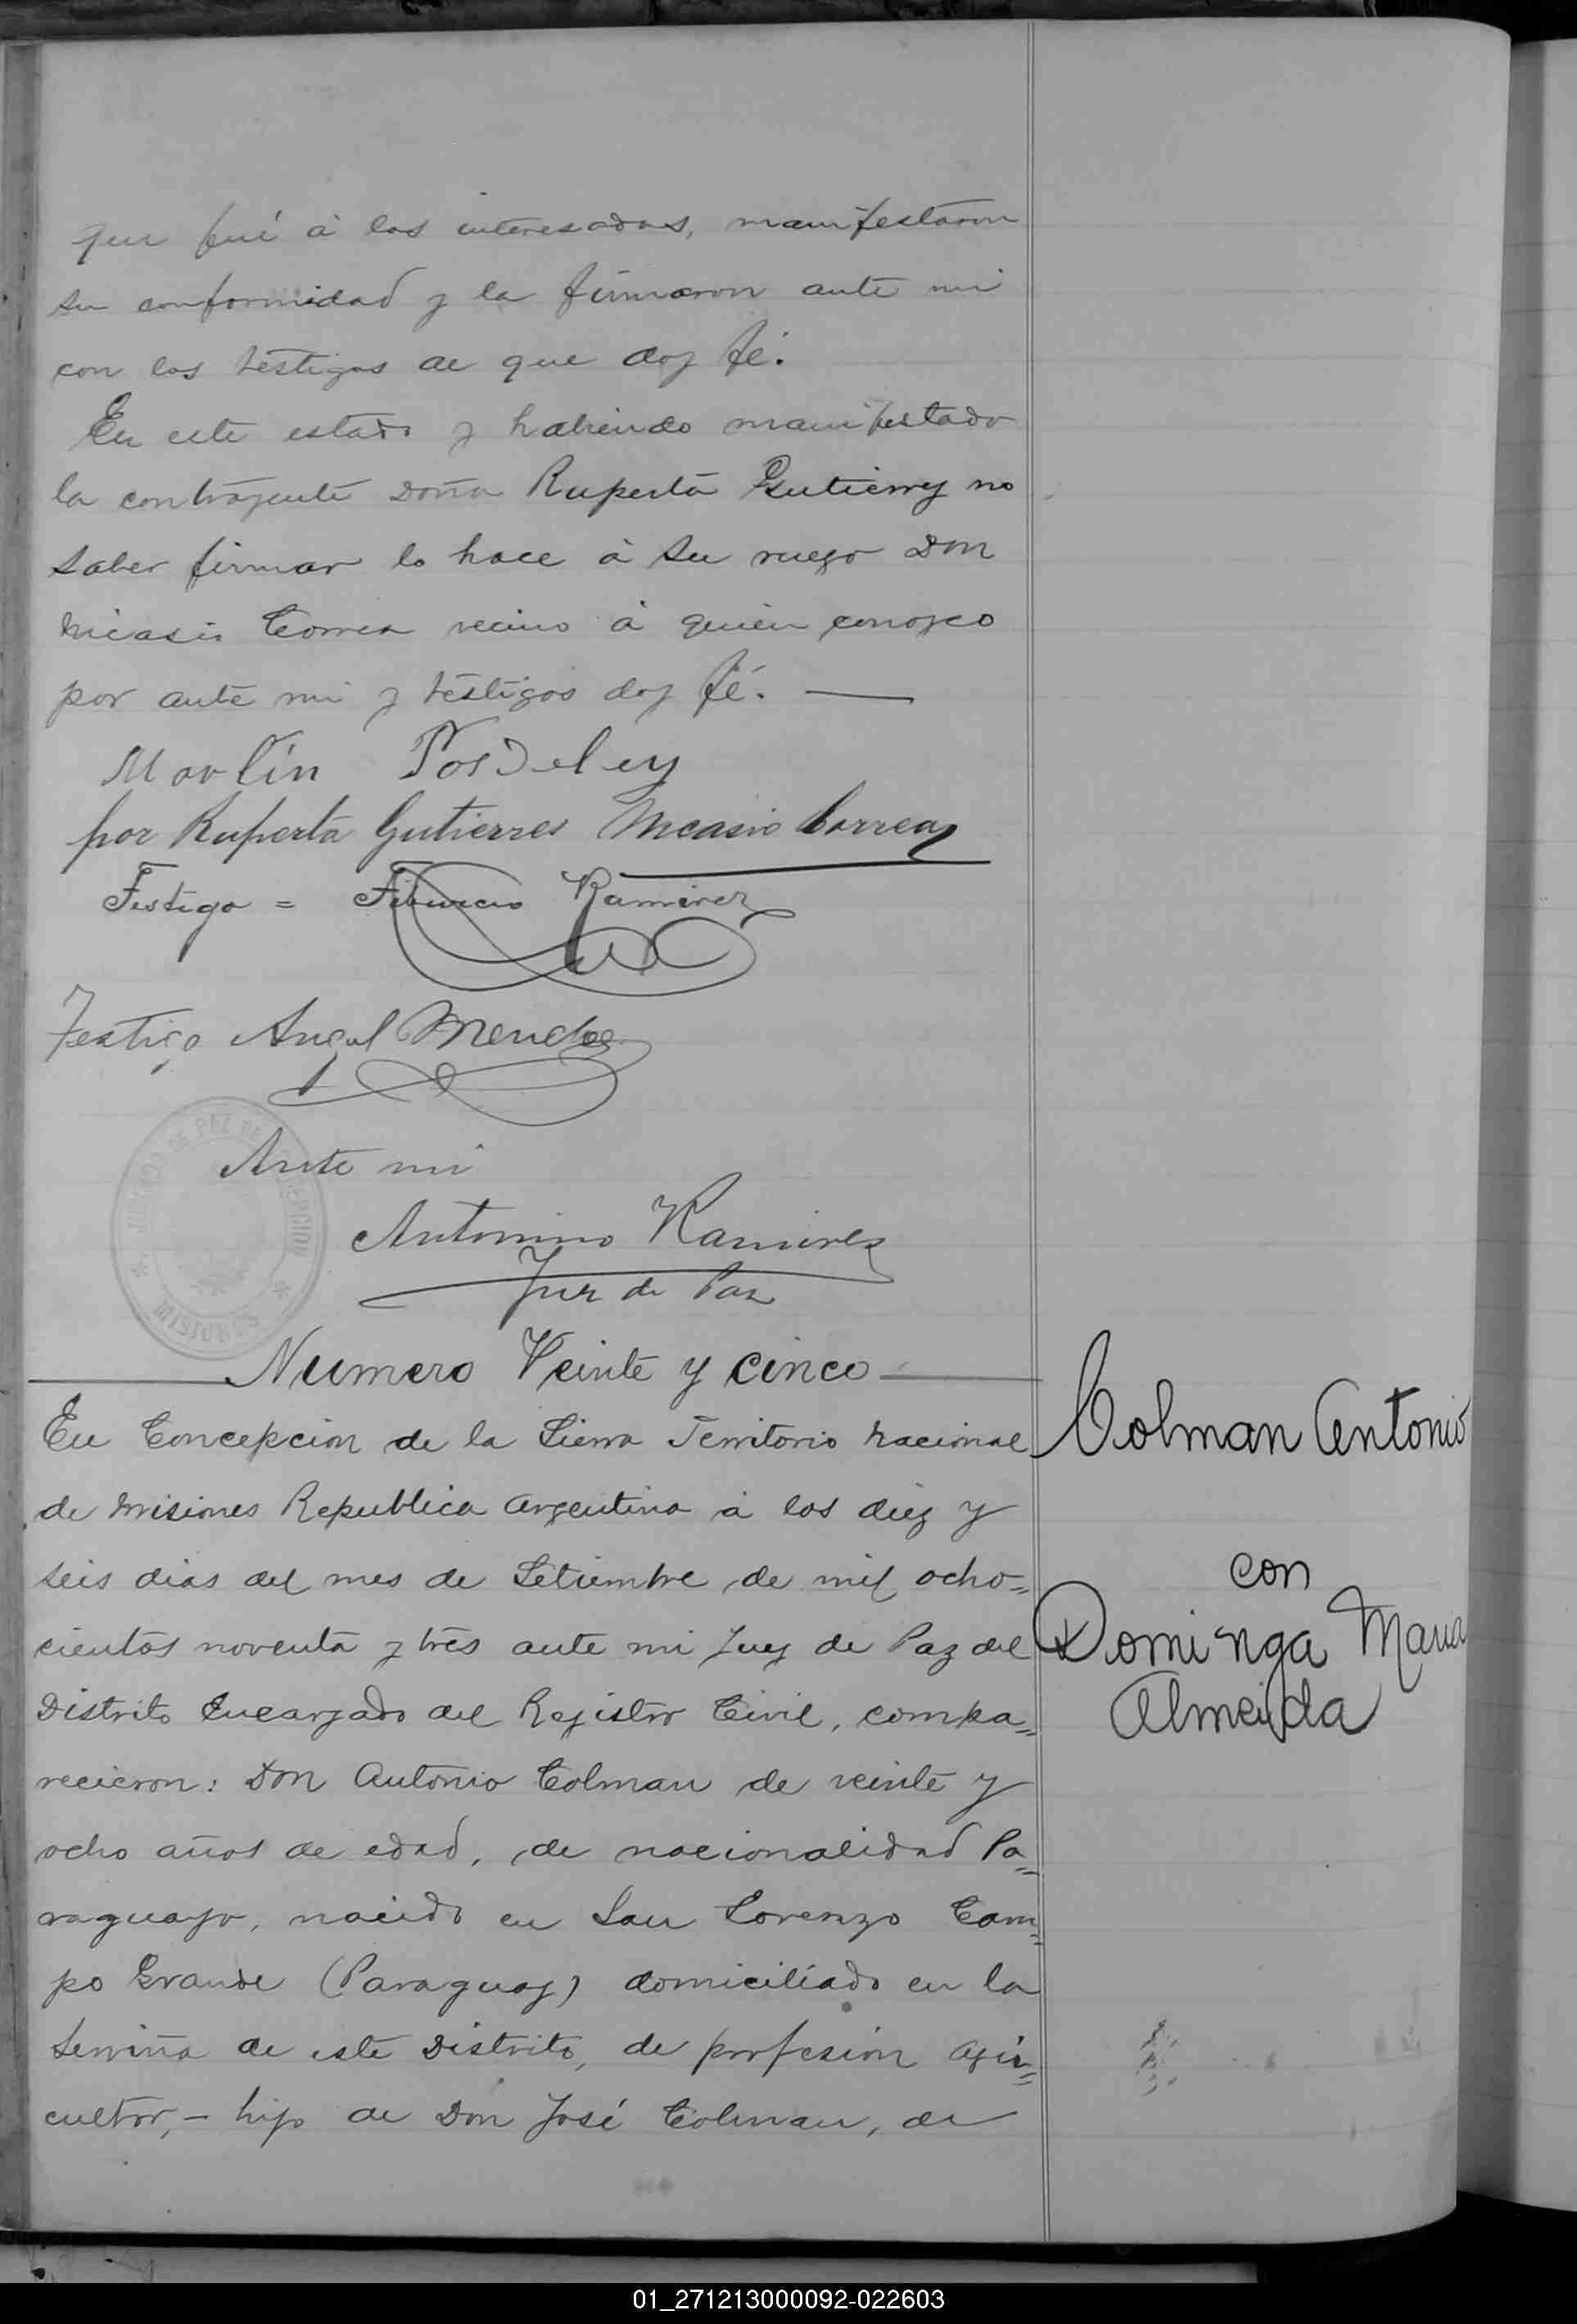 que fué á los interesados, manifestaron
su conformidad y la firmaron ante mi
con los testigos de que doy fé.
En este estado y habiendo manifestado
la contrayente Doña Ruperta Gutierrez no
saber firmar lo hace á su ruego Don
Nicasio Correa vecino á quien conozco
por ante mi y testigos doy fé. —
Martín
por Ruperta Gutierres Nicasio Correa
Testigo = Tiburcio Ramirez
Testigo Angel Mendez
JUZGADO DE PAZ DE CONCEPCION
MISIONES
Ante mi
Antonino Ramirez
Juez de Paz
Numero Veinte y cinco
En Concepcion de la Sierra Territorio Nacional
de Misiones Republica Argentina á los diez y
seis dias del mes de Setiembre de mil ocho=
cientos noventa y tres ante mi Juez de Paz del
Distrito Encargado del Registro Civil, compa=
recieron: Don Antonio Colman de veinte y
ocho años de edad, de nacionalidad Pa=
raguayo, nacido en San Lorenzo Cam=
po Grande (Paraguay) domiciliado en la
de este Distrito, de profesion agri=
cultor,- hijo de Don José Colman, de
Colman Antonio
con
Dominga Maria
Almeida
01_271213000092-022603